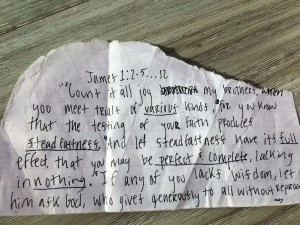 James 1:2-5...12
"Count it all joy my brothers, when
you meet trials of various kinds, for you know
that the testing of your faith produces
steadfastness. And let steadfastness have its full
effect, that you may be perfect & complete, lacking
in nothing. If any of you lacks wisdom, let
him ask God, who gives generously to all without